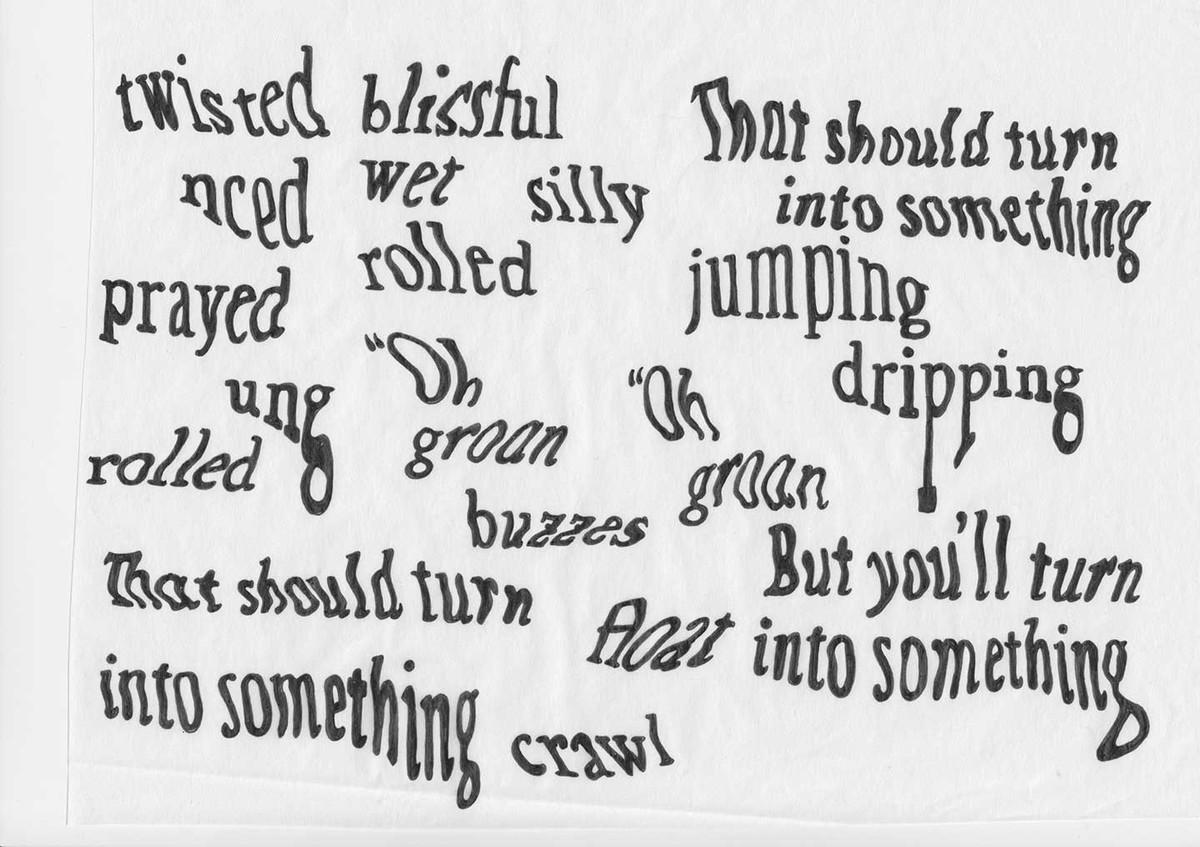 twisted blissful
nced wet silly
prayed rolled
ung "Oh
rolled groan
buzzes
That should turn
into something
jumping
dripping
"Oh
groan
That should turn
into something
float
crawl
But you'll turn
into something